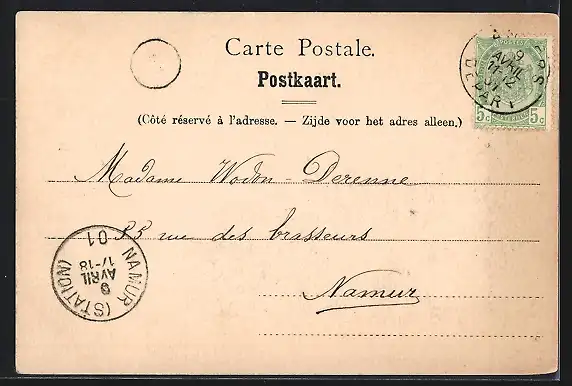 Carte Postale.
Postkaart.
(Côté réservé à l'adresse. — Zijde voor het adres alleen.)
ANVERS
9
AVRIL
11-12
01
DEPART
5c 5c
Madame Wodon-Derenne
35 rue des brasseurs
Namur
NAMUR (STATION)
9
AVRIL
17-18
01